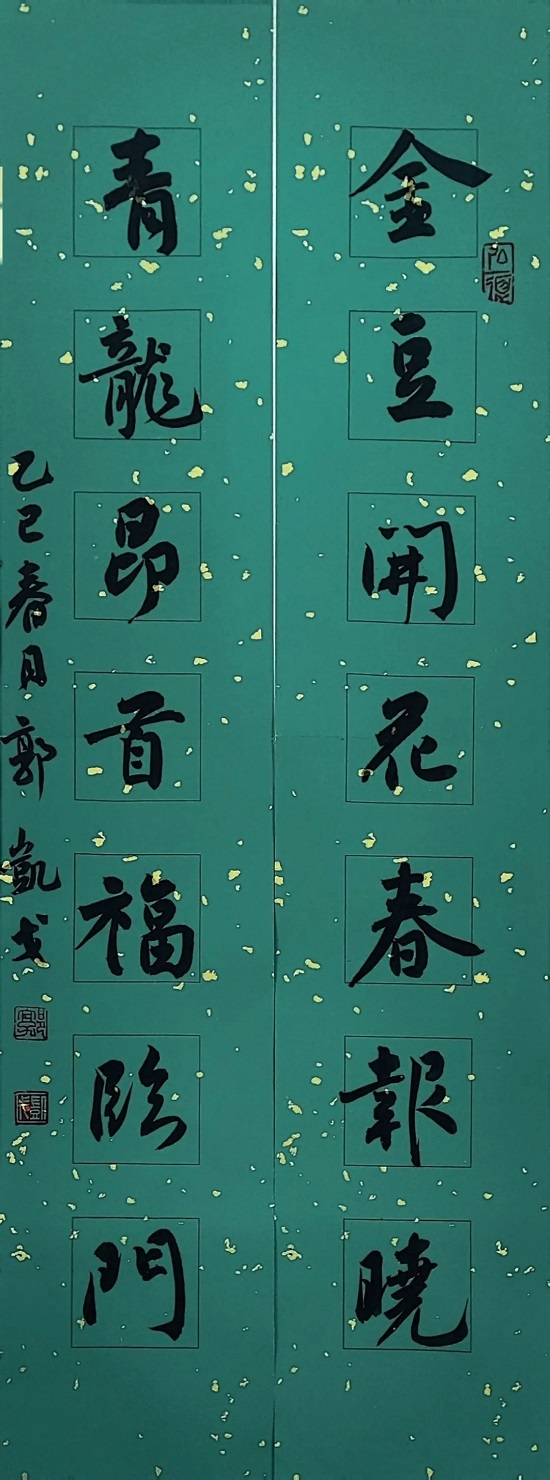 金豆開花春報曉
青龍昂首福臨門
乙巳春月郭凱戈